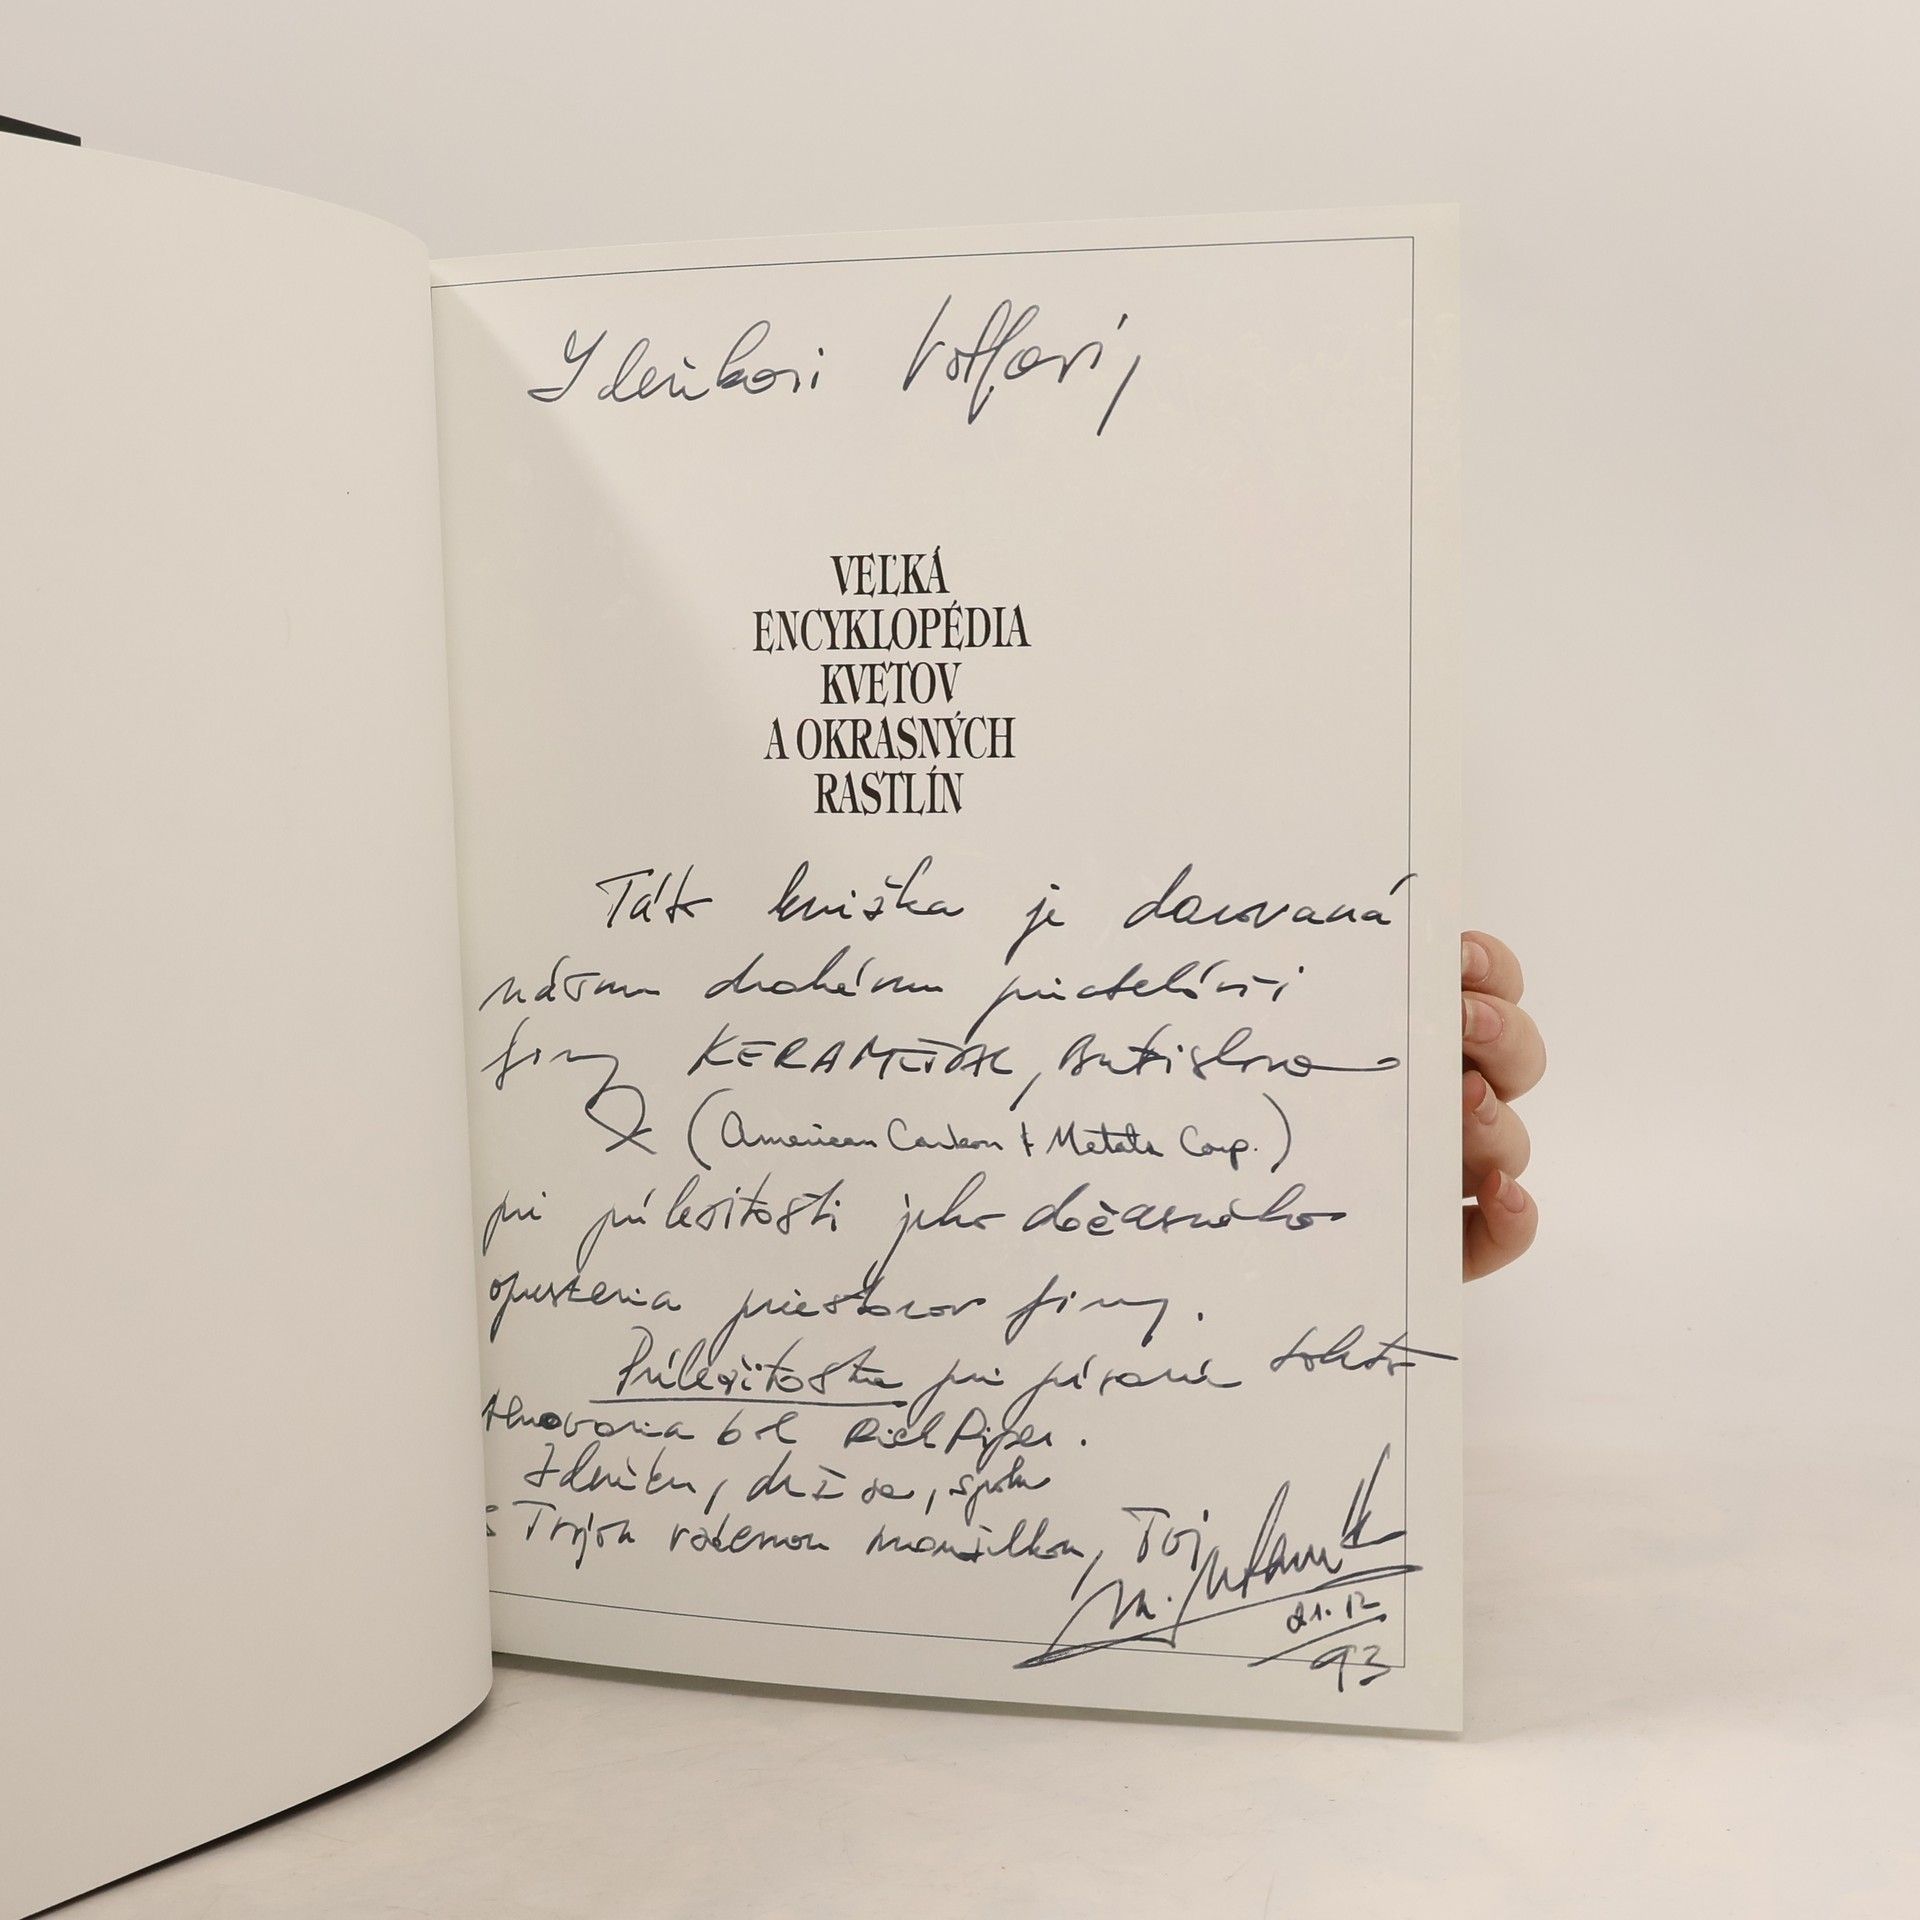 Zdeňkovi
VEĽKÁ
ENCYKLOPÉDIA
KVETOV
A OKRASNÝCH
RASTLÍN
Táto knižka je darovaná
nášmu drahému priateľovi
firmy KERAMETAL, Bratislava
(American Carbon & Metals Corp.)
pri príležitosti jeho dočasného
opustenia priestorov firmy.
pri písaní tohto
bol Rich Piper.
Zdeňku, drž sa, spolu
s Tvojou váženou manželkou, Tvoj
M.
21.12
93